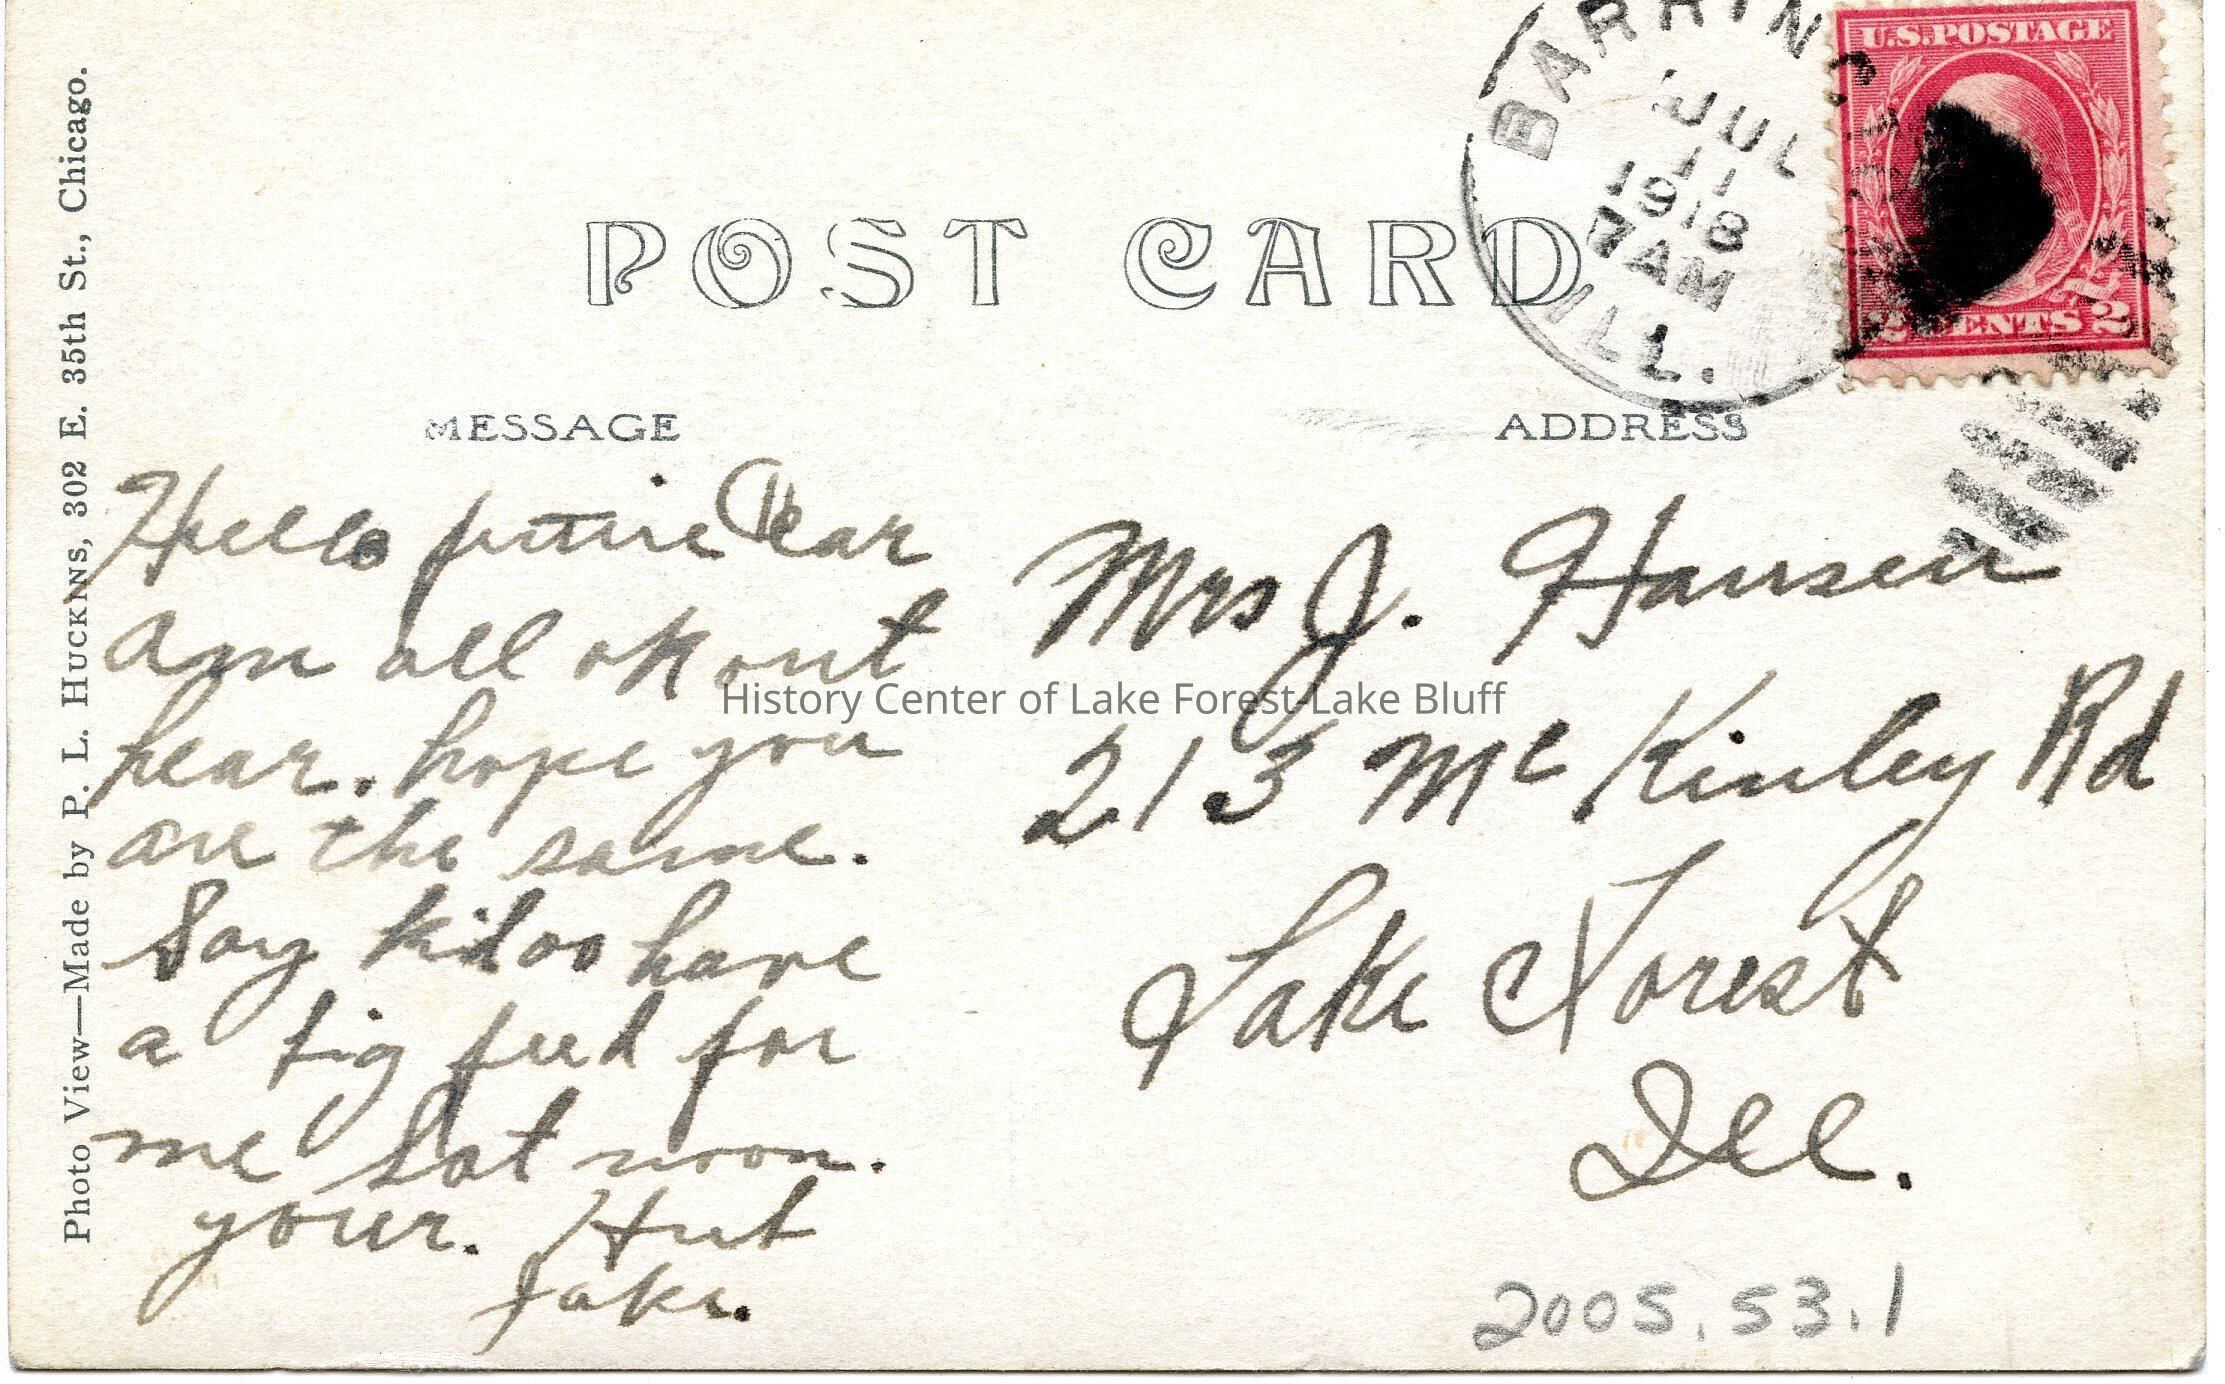 Photo View—Made by P. L. HUCKNS, 302 E. 35th St., Chicago.
POST CARD
BARRING
JUL
11
1918
7AM
ILL.
U.S. POSTAGE
2 CENTS 2
MESSAGE
Hello Dear
Am all ok out
hear. hope you
are the same.
Say kidoo have
a big feed for
me Sat noon.
your. Hub
Jake.
ADDRESS
Mrs J. Hansen
213 Mc Kinley Rd
Lake Forest
Ill.
History Center of Lake Forest-Lake Bluff
2005.53.1